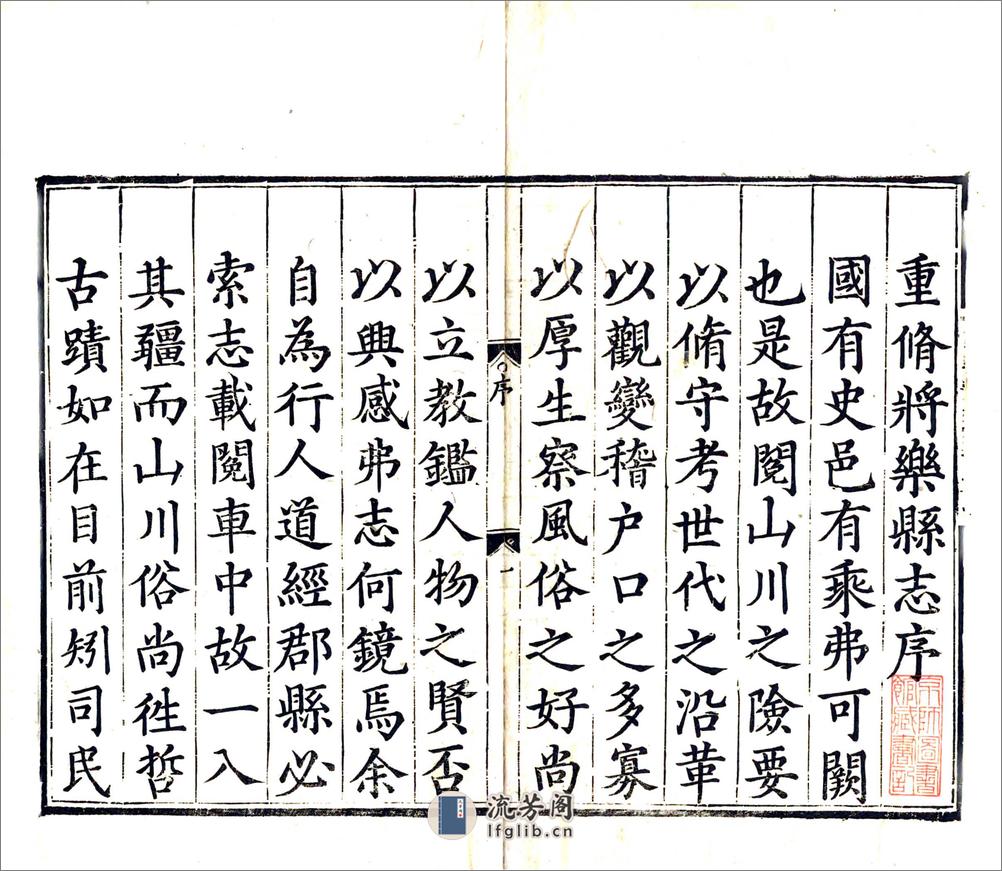 重脩將樂縣志序
京師圖書
館藏書記
國有史邑有乘弗可闕
也是故閱山川之險要
以脩守考世代之沿革
以觀變稽户口之多寡
以厚生察風俗之好尚
序
一
以立教鑑人物之賢否
以興感弗志何鏡焉余
自為行人道經郡縣必
索志載閱車中故一入
其疆而山川俗尚徃哲
古蹟如在目前矧司民
流芳阁
lfglib.cn